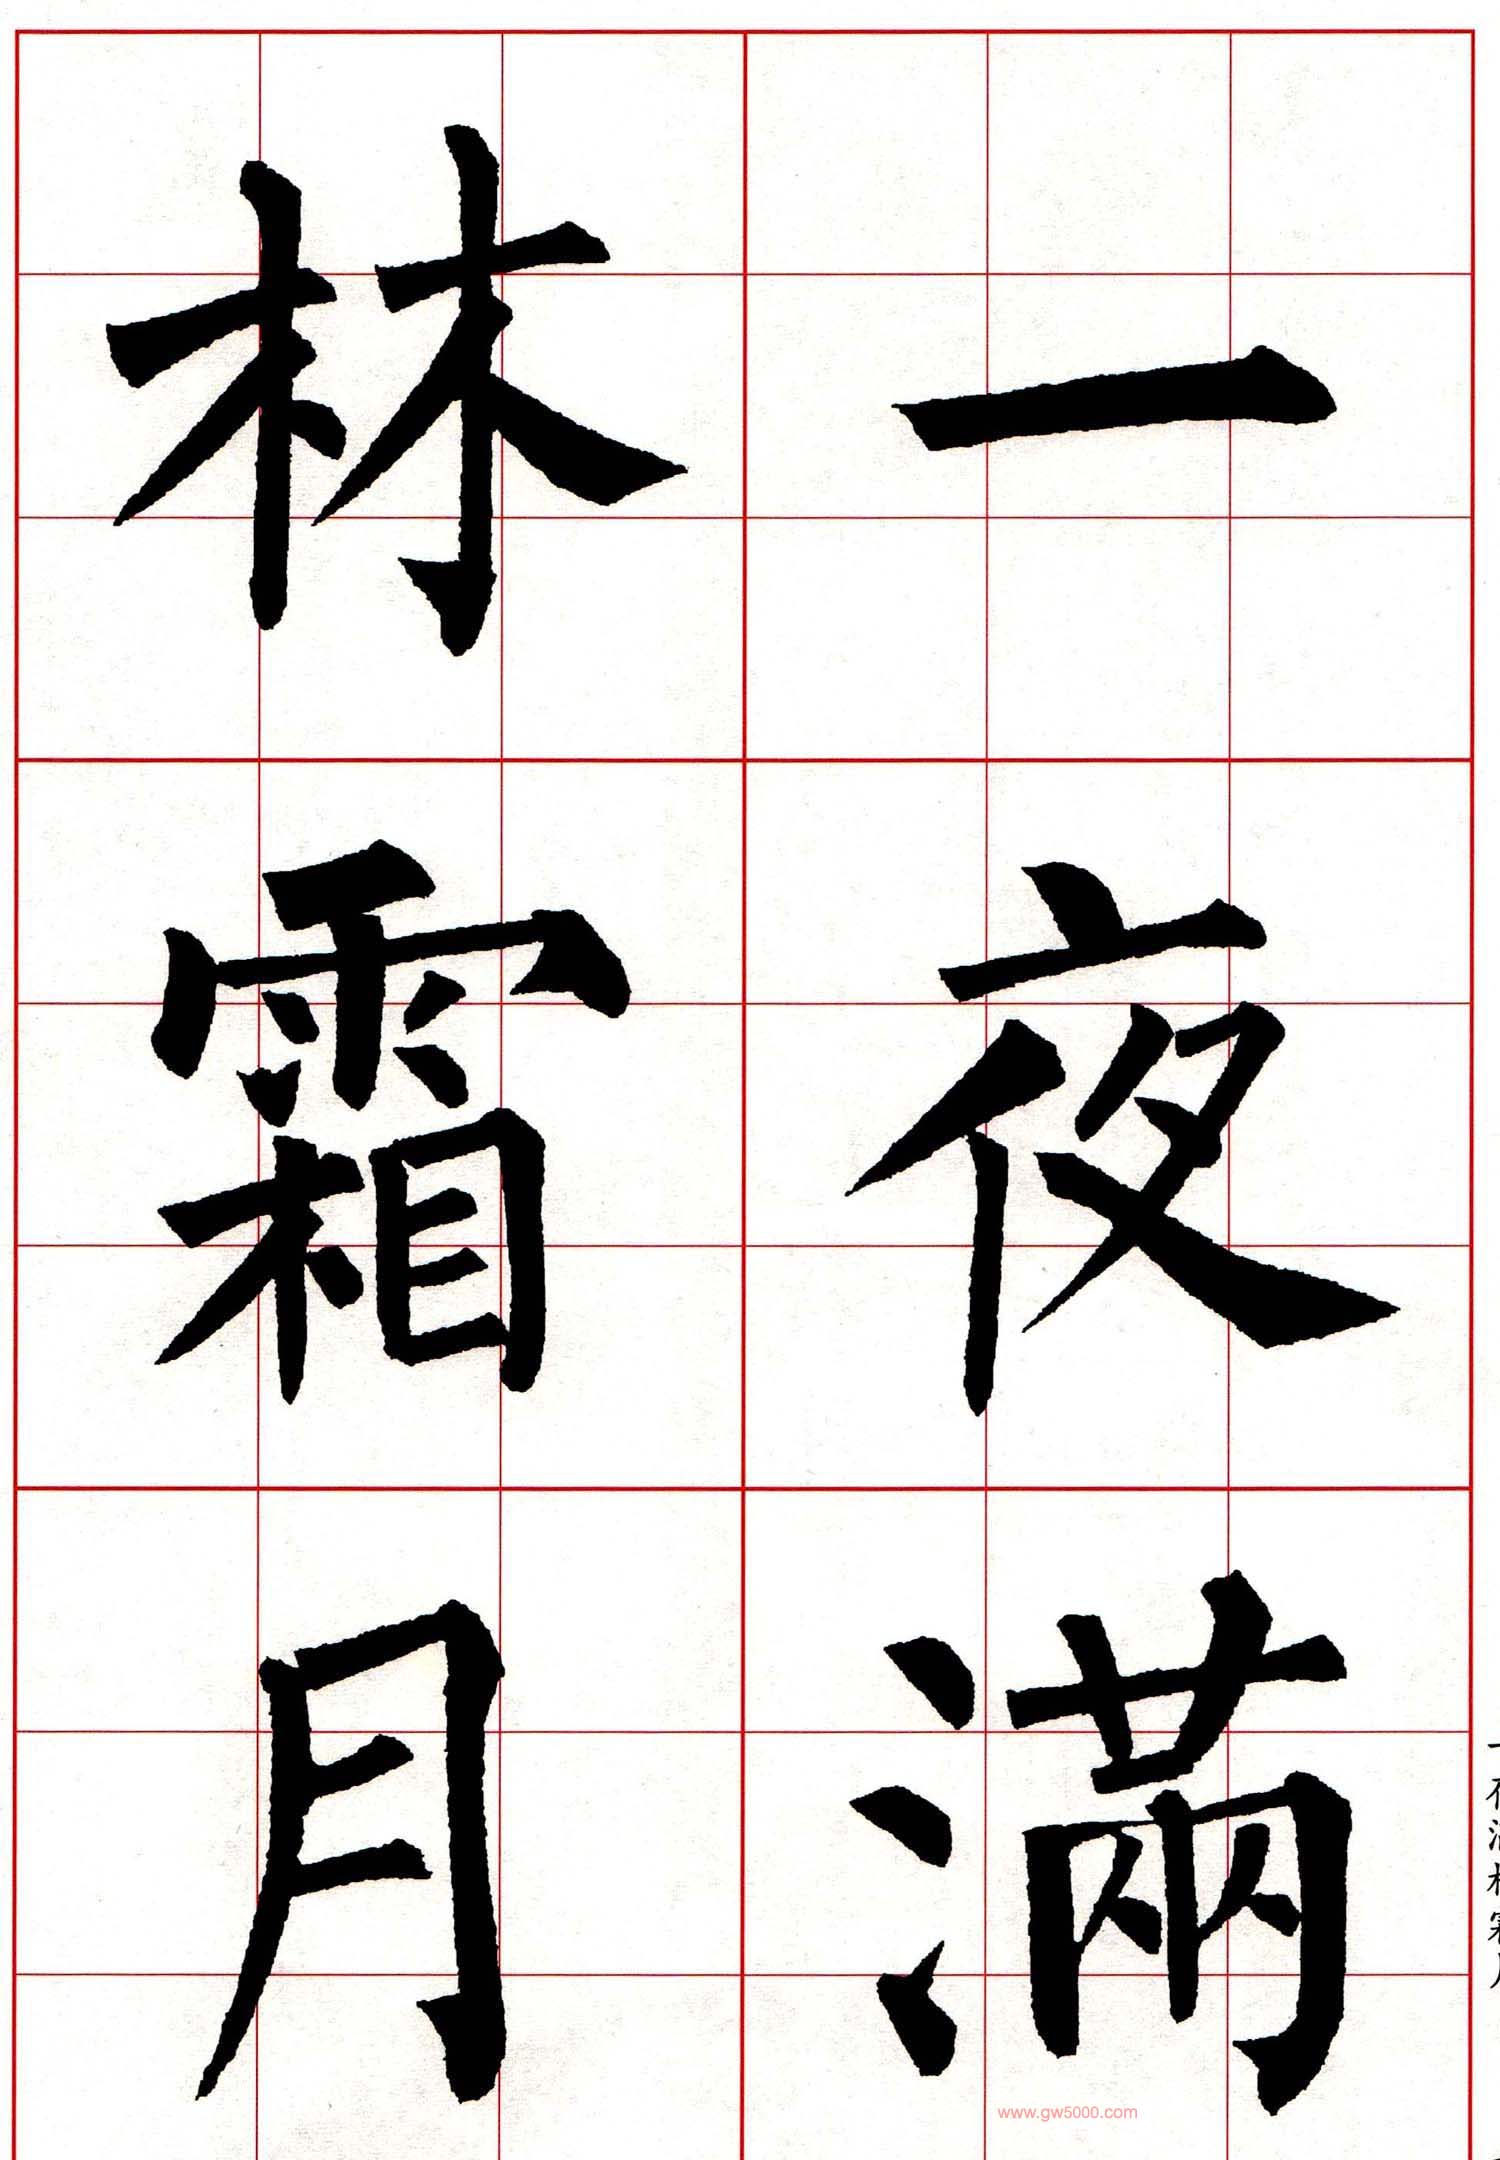 一夜滿
林霜月
www.gw5000.com